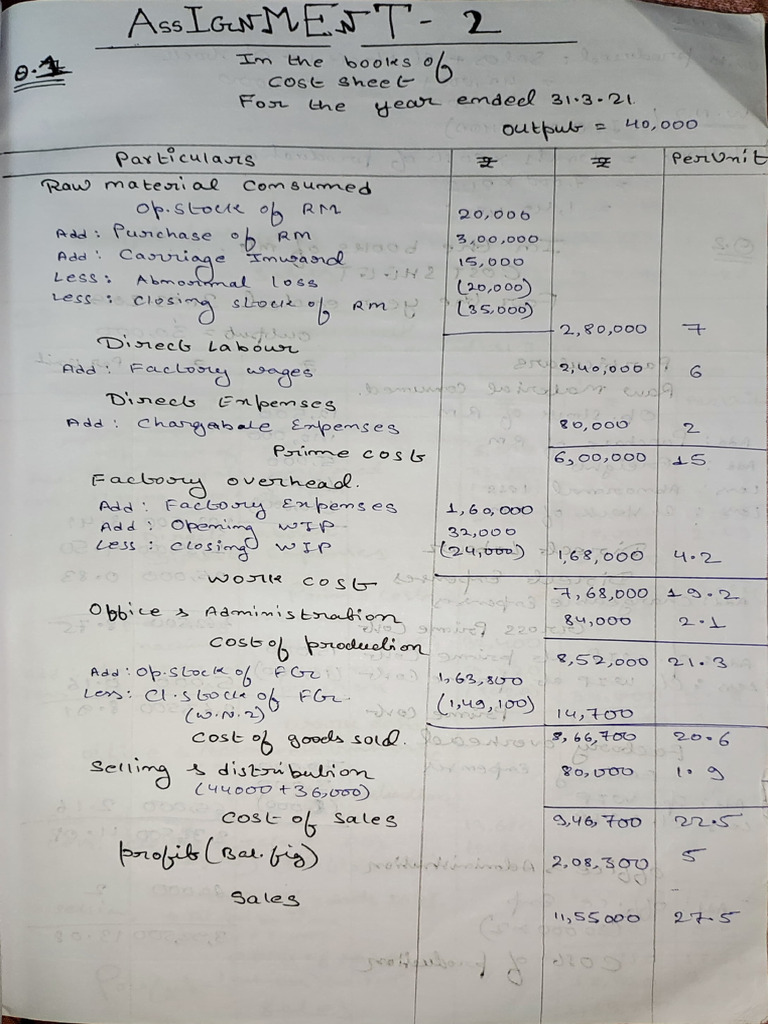 ASSIGNMENT - 2
Q.1
In the books of
Cost Sheet
For the year ended 31.3.21
output = 40,000
Particulars ₹ ₹ Per Unit
Raw material Consumed
Op. Stock of RM 20,000
Add: Purchase of RM 3,00,000
Add: Carriage Inward 15,000
Less: Abnormal loss (20,000)
Less: Closing stock of RM (35,000)
2,80,000 7
Direct Labour
Add: Factory wages 2,40,000 6
Direct Expenses
Add: Chargabale Expenses 80,000 2
Prime cost 6,00,000 15
Factory overhead.
Add: Factory Expenses 1,60,000
Add: Opening WIP 32,000
Less: Closing WIP (24,000) 1,68,000 4.2
Work cost 7,68,000 19.2
Office & Administration 84,000 2.1
Cost of production 8,52,000 21.3
Add: Op. Stock of FG 1,63,800
Less: Cl. Stock of FG. (1,49,100) 14,700
(W.N.2)
Cost of goods sold. 8,66,700 20.6
Selling & distribution 80,000 1.9
(44000 + 36,000)
Cost of Sales 9,46,700 22.5
Profit (Bal. fig) 2,08,300 5
Sales 11,55000 27.5